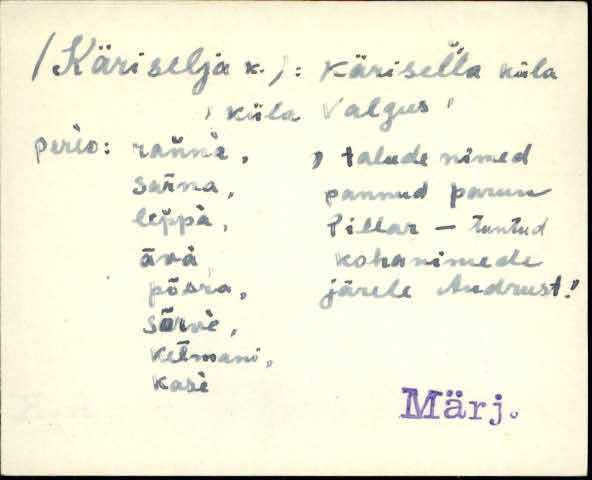 (Käriselja k.): Käriseĺĺa küla
, küla Valgus,
perèo: rañnà, , talude nimed
sařna, pannud parun
leppà, Pillar — tuntud
ävà, kohanimede
põsra, järele Andrust!
sõrvè,
kelmani,
kasè
Märj.